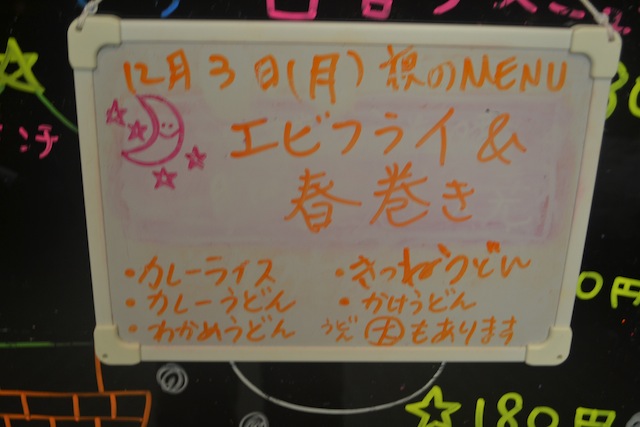 12月3日(月) 夜のMENU
エビフライ&
春巻き
・カレーライス
・きつねうどん
・カレーうどん
・かけうどん
・わかめうどん
うどん 大もあります
0円
180円